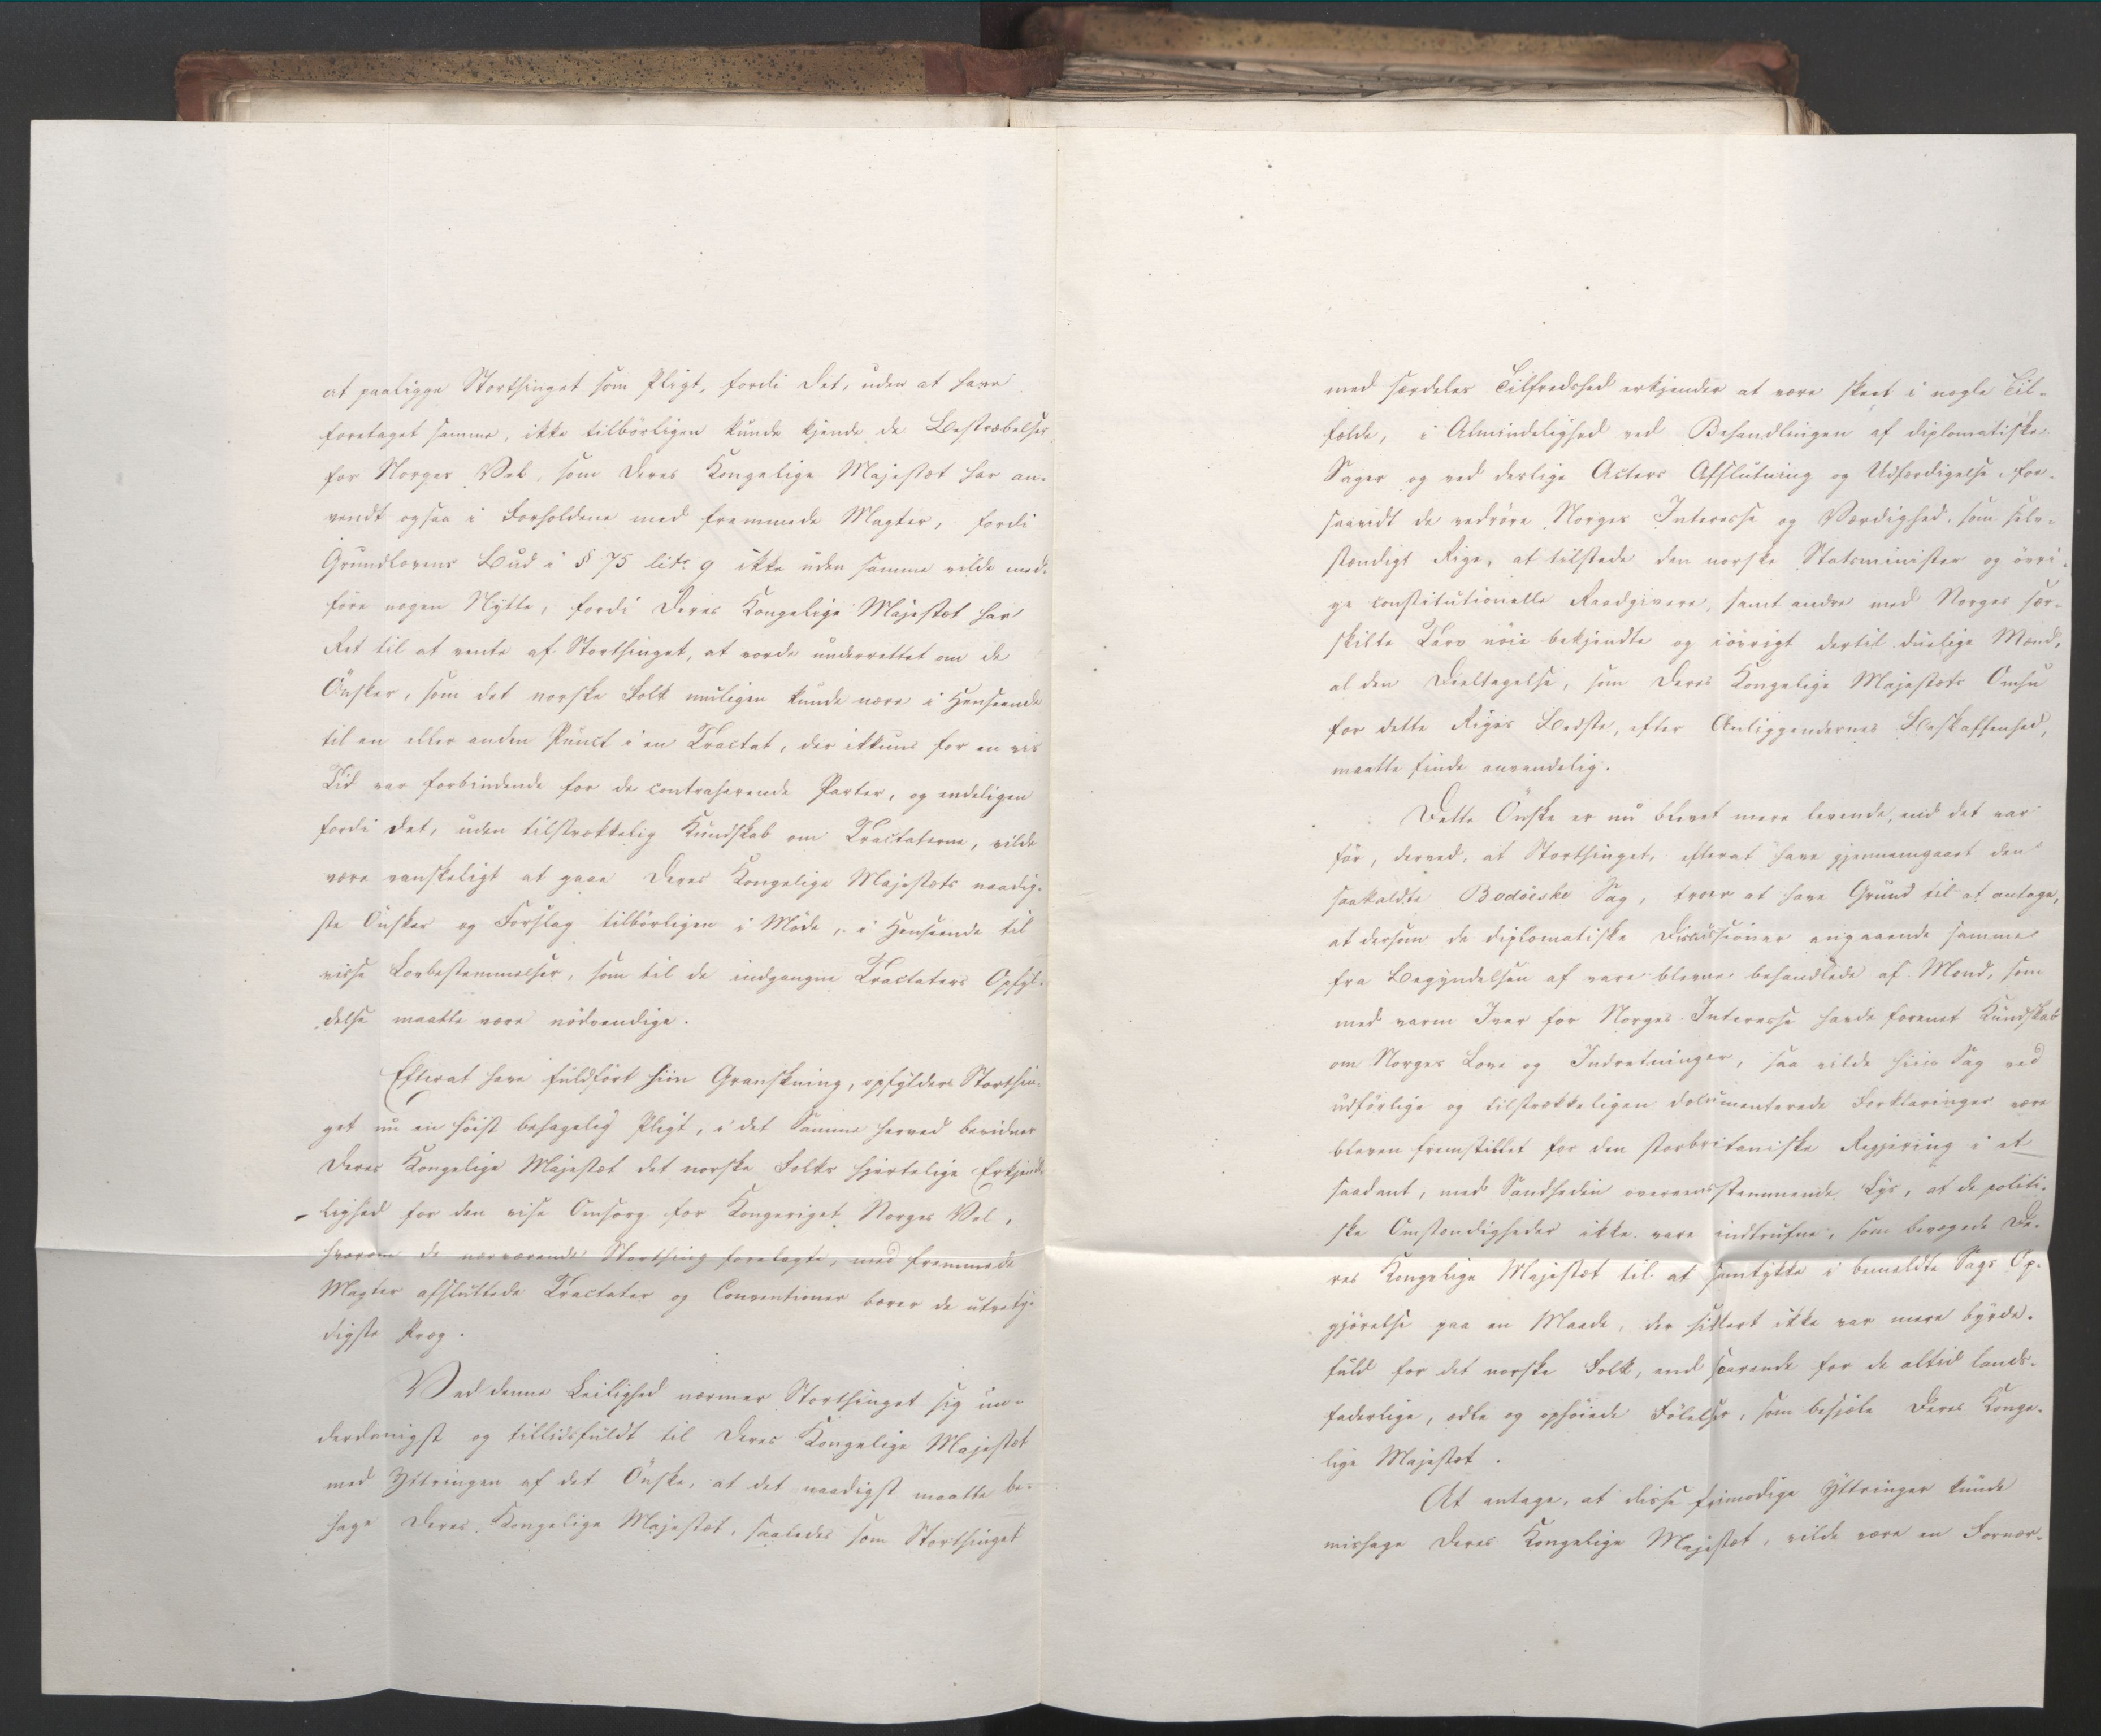 at paaligge Storthinget som Pligt, fordi det, uden at have
foretaget samme, ikke tilbörligen kunde kjende de Bestræbelser
for Norges Vel, som Deres Kongelige Majestæt har an-
vendt ogsaa i Forholdene med fremmede Magter, fordi
Grundlovens Bud i § 75 litr g ikke uden samme vilde med-
före nogen Nytte, fordi Deres Kongelige Majestæt har
Ret til at vente af Storthinget, at vorde underrettet om de
Önsker, som det norske Folk muligen kunde nære i Henseende
til en eller anden Punct i en Tractat, der ikkuns for en vis
Tid var forbindende for de contraherende Parter, og endeligen
fordi det, uden tilstrækkelig Kundskab om Tractaterne, vilde
være vanskeligt at gaae Deres Kongelige Majestæts naadig-
ste Önsker og Forslag tilbörligen i Möde, i Henseende til
visse Lovbestemmelser, som til de indgangne Tractaters Opfyl-
delse maatte være nödvendige.
Efterat have fuldfört hiin Granskning, opfylder Storthin-
get nu en höist behagelig Pligt, i det Samme herved bevidner
Deres Kongelige Majestæt det norske Folks hjertelige Erkjendt-
lighed for den vise Omsorg for Kongeriget Norges Vel,
hvorom de nærværende Storthing forelagte, med fremmede
Magter afsluttede Tractater og Conventioner bærer de utvety-
digste Præg.
Ved denne Leilighed nærmer Storthinget sig un-
derdanigst og tillidsfuldt til Deres Kongelige Majestæt
med Yttringen af det Önske, at det naadigst maatte be-
hage Deres Kongelige Majestæt, saaledes som Storthinget
med særdeles Tilfredshed erkjender at være skeet i nogle Til-
fælde, i Almindelighed ved Behandlingen af diplomatiske
Sager og ved deslige Acters Afslutning og Udfærdigelse, for-
saavidt de vedröre Norges Interesse og Værdighed, som selv-
stændigt Rige, at tilstede den norske Statsminister og övri-
ge constitutionelle Raadgivere, samt andre med Norges sær-
skilte Tarv nöie bekjendte og iövrigt dertil duelige Mænd,
al den Deeltagelse, som Deres Kongelige Majestæts Omhu
for dette Riges Bedste, efter Anliggendernes Beskaffenhed,
maatte finde anvendelig.
Dette Önske er nu blevet mere levende, end det var
för, derved, at Storthinget, efterat have gjennemgaaet den
saakaldte Bodöeske Sag, troer at have Grund til at antage,
at dersom de diplomatiske Discussioner angaaende samme
fra Begyndelsen af vare blevne behandlede af Mænd, som
med varm Iver for Norges Interesse havde forenet Kundskab
om Norges Love og Indretninger, saa vilde hiin Sag ved
udförlige og tilstrækkeligen documenterede Forklaringer være
bleven fremstillet for den storbritaniske Regjering i et
saadant, med Sandheden overeensstemmende Lys, at de politi-
ske Omstændigheder ikke vare indtrufne, som bevægede De-
res Kongelige Majestæt til at samtykke i bemeldte Sags Op-
gjörelse paa en Maade, der sikkert ikke var mere byrde-
fuld for det norske Folk, end saarende for de altid lands-
faderlige, ædle og ophöiede Fölelser, som besjæle Deres Konge-
lige Majestæt.
At antage, at disse frimodige Yttringer kunde
mishage Deres Kongelige Majestæt, vilde være en Fornær-